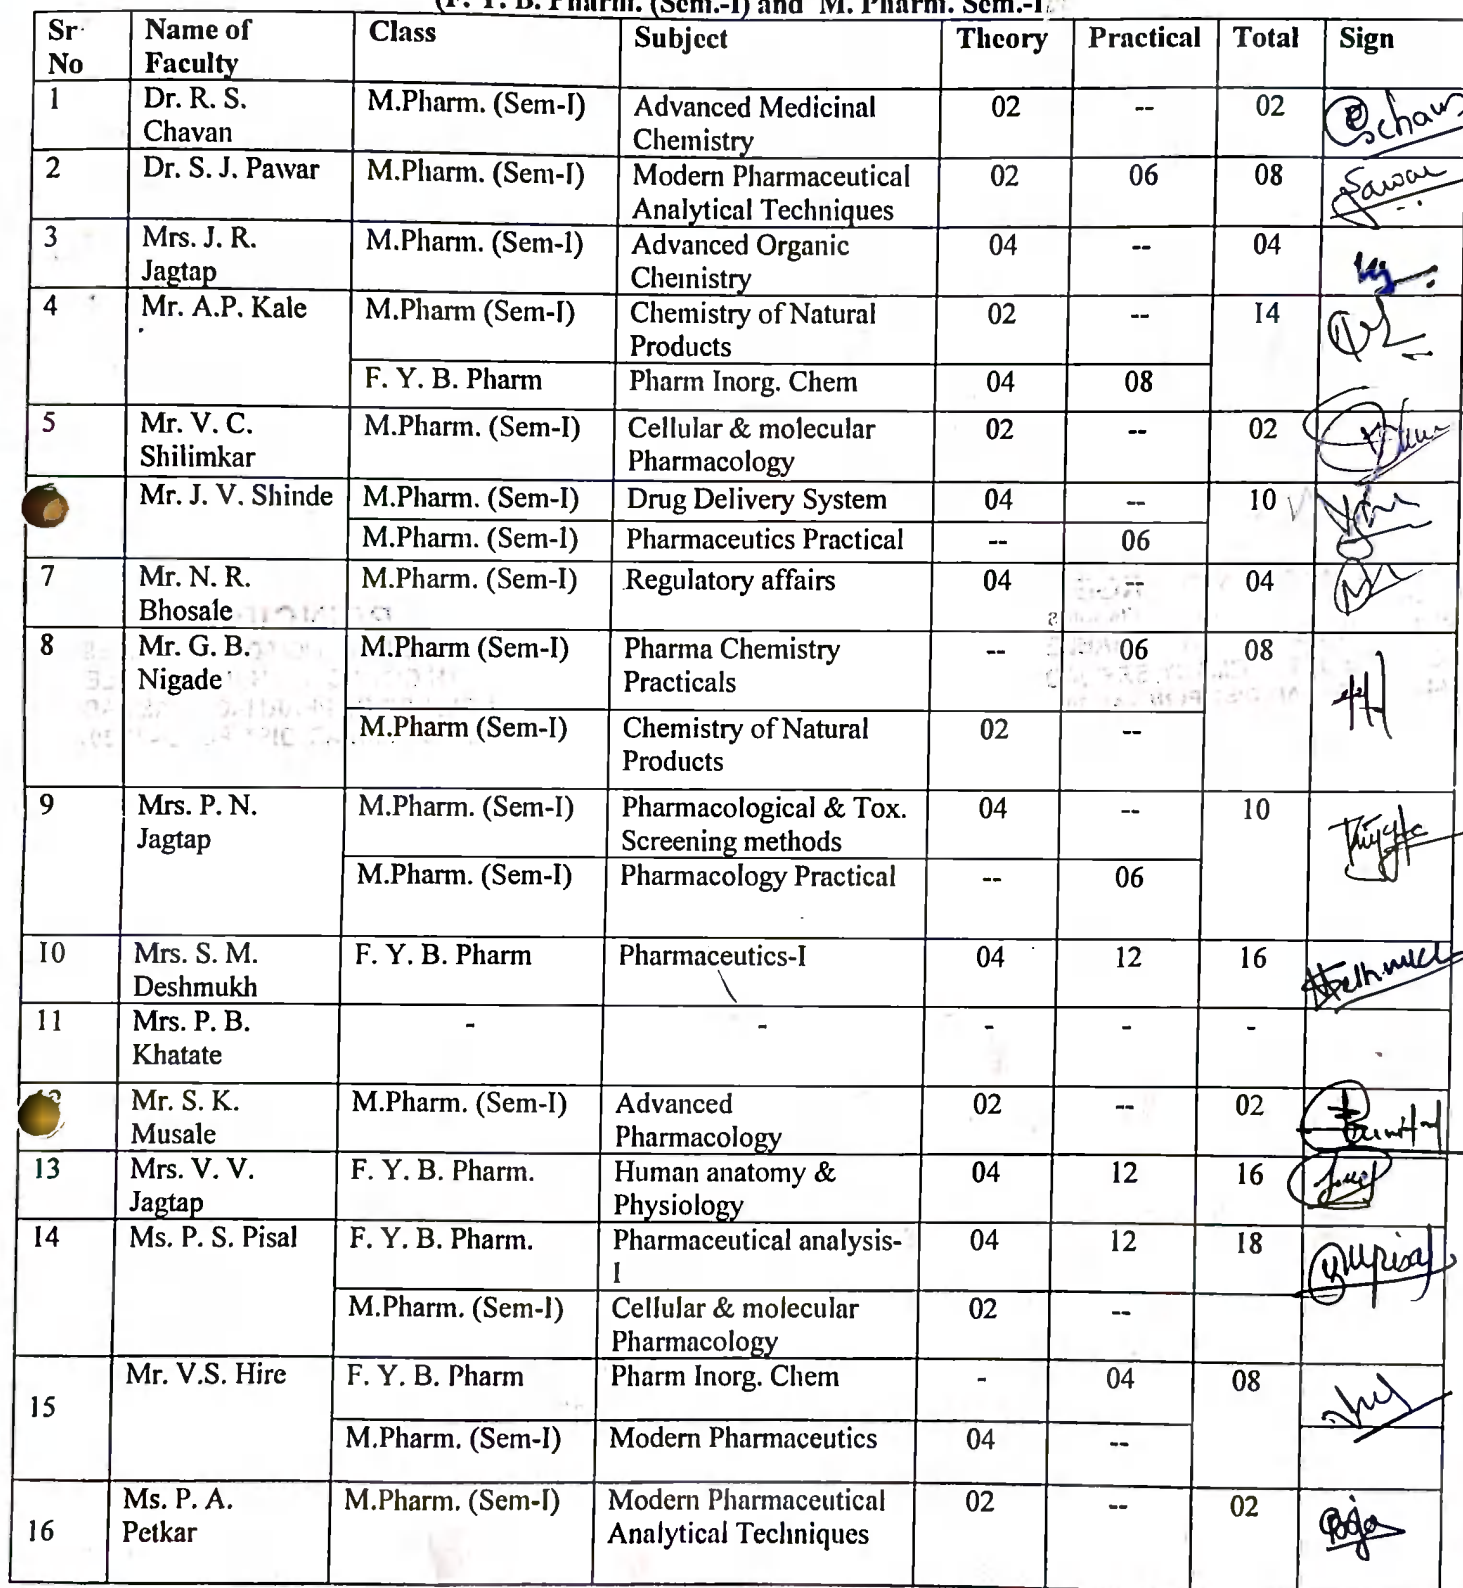 (F. Y. B. Pharm. (Sem.-I) and M. Pharm. Sem.-I
Sr No | Name of Faculty | Class | Subject | Theory | Practical | Total | Sign
1 | Dr. R. S. Chavan | M.Pharm. (Sem-I) | Advanced Medicinal Chemistry | 02 | -- | 02
2 | Dr. S. J. Pawar | M.Pharm. (Sem-I) | Modern Pharmaceutical Analytical Techniques | 02 | 06 | 08
3 | Mrs. J. R. Jagtap | M.Pharm. (Sem-I) | Advanced Organic Chemistry | 04 | -- | 04
4 | Mr. A.P. Kale | M.Pharm (Sem-I) | Chemistry of Natural Products | 02 | -- | 14
F. Y. B. Pharm | Pharm Inorg. Chem | 04 | 08
5 | Mr. V. C. Shilimkar | M.Pharm. (Sem-I) | Cellular & molecular Pharmacology | 02 | -- | 02
Mr. J. V. Shinde | M.Pharm. (Sem-I) | Drug Delivery System | 04 | -- | 10
M.Pharm. (Sem-I) | Pharmaceutics Practical | -- | 06
7 | Mr. N. R. Bhosale | M.Pharm. (Sem-I) | Regulatory affairs | 04 | -- | 04
8 | Mr. G. B. Nigade | M.Pharm (Sem-I) | Pharma Chemistry Practicals | -- | 06 | 08
M.Pharm (Sem-I) | Chemistry of Natural Products | 02 | --
9 | Mrs. P. N. Jagtap | M.Pharm. (Sem-I) | Pharmacological & Tox. Screening methods | 04 | -- | 10
M.Pharm. (Sem-I) | Pharmacology Practical | -- | 06
10 | Mrs. S. M. Deshmukh | F. Y. B. Pharm | Pharmaceutics-I | 04 | 12 | 16
11 | Mrs. P. B. Khatate | - | - | - | - | -
Mr. S. K. Musale | M.Pharm. (Sem-I) | Advanced Pharmacology | 02 | -- | 02
13 | Mrs. V. V. Jagtap | F. Y. B. Pharm. | Human anatomy & Physiology | 04 | 12 | 16
14 | Ms. P. S. Pisal | F. Y. B. Pharm. | Pharmaceutical analysis-I | 04 | 12 | 18
M.Pharm. (Sem-I) | Cellular & molecular Pharmacology | 02 | --
15 | Mr. V.S. Hire | F. Y. B. Pharm | Pharm Inorg. Chem | - | 04 | 08
M.Pharm. (Sem-I) | Modern Pharmaceutics | 04 | --
16 | Ms. P. A. Petkar | M.Pharm. (Sem-I) | Modern Pharmaceutical Analytical Techniques | 02 | -- | 02